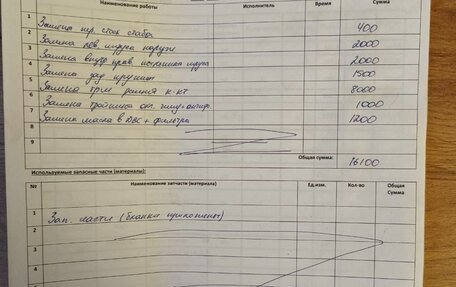 Наименование работы Исполнитель Время Сумма
1 Замена пр. стой стабил 400
2 Замена лев. шруса наружн 2000
3 Замена внутр прав. пыльника шруса 2000
4 Замена зад пружин 1500
5 Замена грм ремней к-кт 8000
6 Замена тройника 1000
7 Замена масла в ДВС + фильтра 1200
8
9
Общая сумма: 16100
Используемые запасные части (материалы):
№ Наименование запчасти (материала) Ед.изм. Кол-во Общая Сумма
1 Зап. части (бланки приложены)
2
3
4